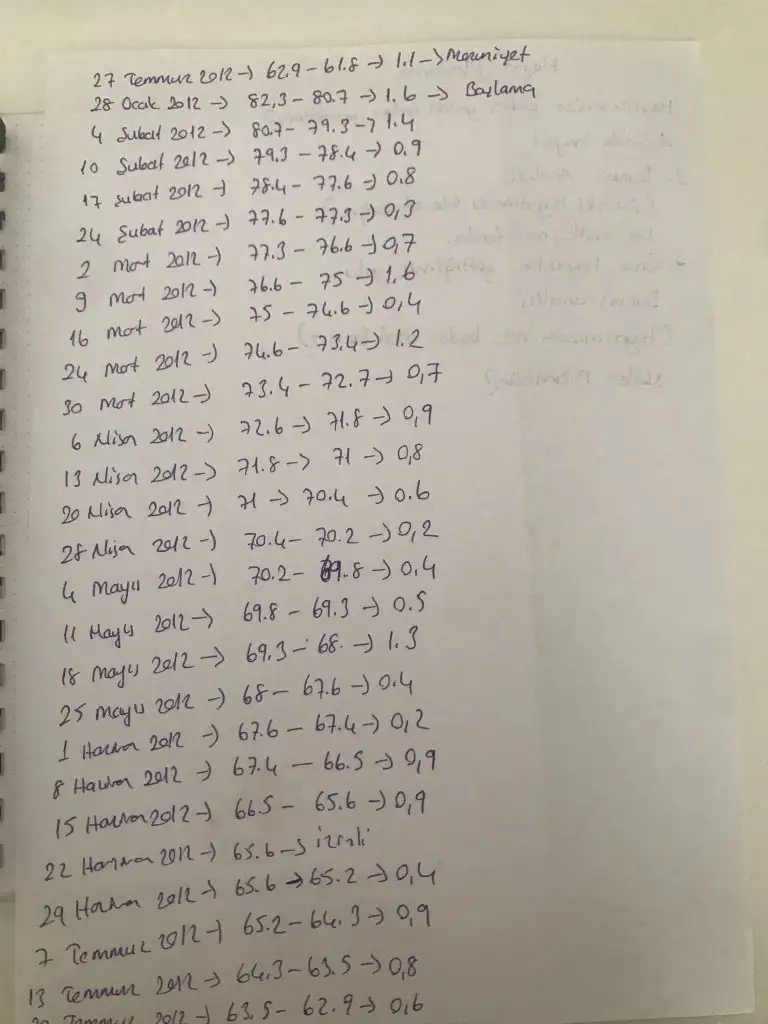 27 Temmuz 2012 → 62.9 – 61.8 → 1.1 → Mezuniyet
28 Ocak 2012 → 82,3 – 80.7 → 1.6 → Başlama
4 Şubat 2012 → 80.7 – 79.3 → 1.4
10 Şubat 2012 → 79.3 – 78.4 → 0.9
17 Şubat 2012 → 78.4 – 77.6 → 0.8
24 Şubat 2012 → 77.6 – 77.3 → 0,3
2 Mart 2012 → 77.3 – 76.6 → 0,7
9 Mart 2012 → 76.6 – 75 → 1.6
16 Mart 2012 → 75 – 74.6 → 0,4
24 Mart 2012 → 74.6 – 73.4 → 1.2
30 Mart 2012 → 73.4 – 72.7 → 0,7
6 Nisan 2012 → 72.6 → 71.8 → 0,9
13 Nisan 2012 → 71.8 → 71 → 0,8
20 Nisan 2012 → 71 → 70.4 → 0.6
28 Nisan 2012 → 70.4 – 70.2 → 0,2
4 Mayıs 2012 → 70.2 – 69.8 → 0.4
11 Mayıs 2012 → 69.8 – 69.3 → 0.5
18 Mayıs 2012 → 69.3 – 68. → 1.3
25 Mayıs 2012 → 68 – 67.6 → 0.4
1 Haziran 2012 → 67.6 – 67.4 → 0,2
8 Haziran 2012 → 67.4 – 66.5 → 0,9
15 Haziran 2012 → 66.5 – 65.6 → 0,9
22 Haziran 2012 → 65.6 → izinli
29 Haziran 2012 → 65.6 → 65.2 → 0,4
7 Temmuz 2012 → 65.2 – 64.3 → 0,9
13 Temmuz 2012 → 64.3 – 63.5 → 0,8
20 Temmuz 2012 → 63.5 – 62.9 → 0,6